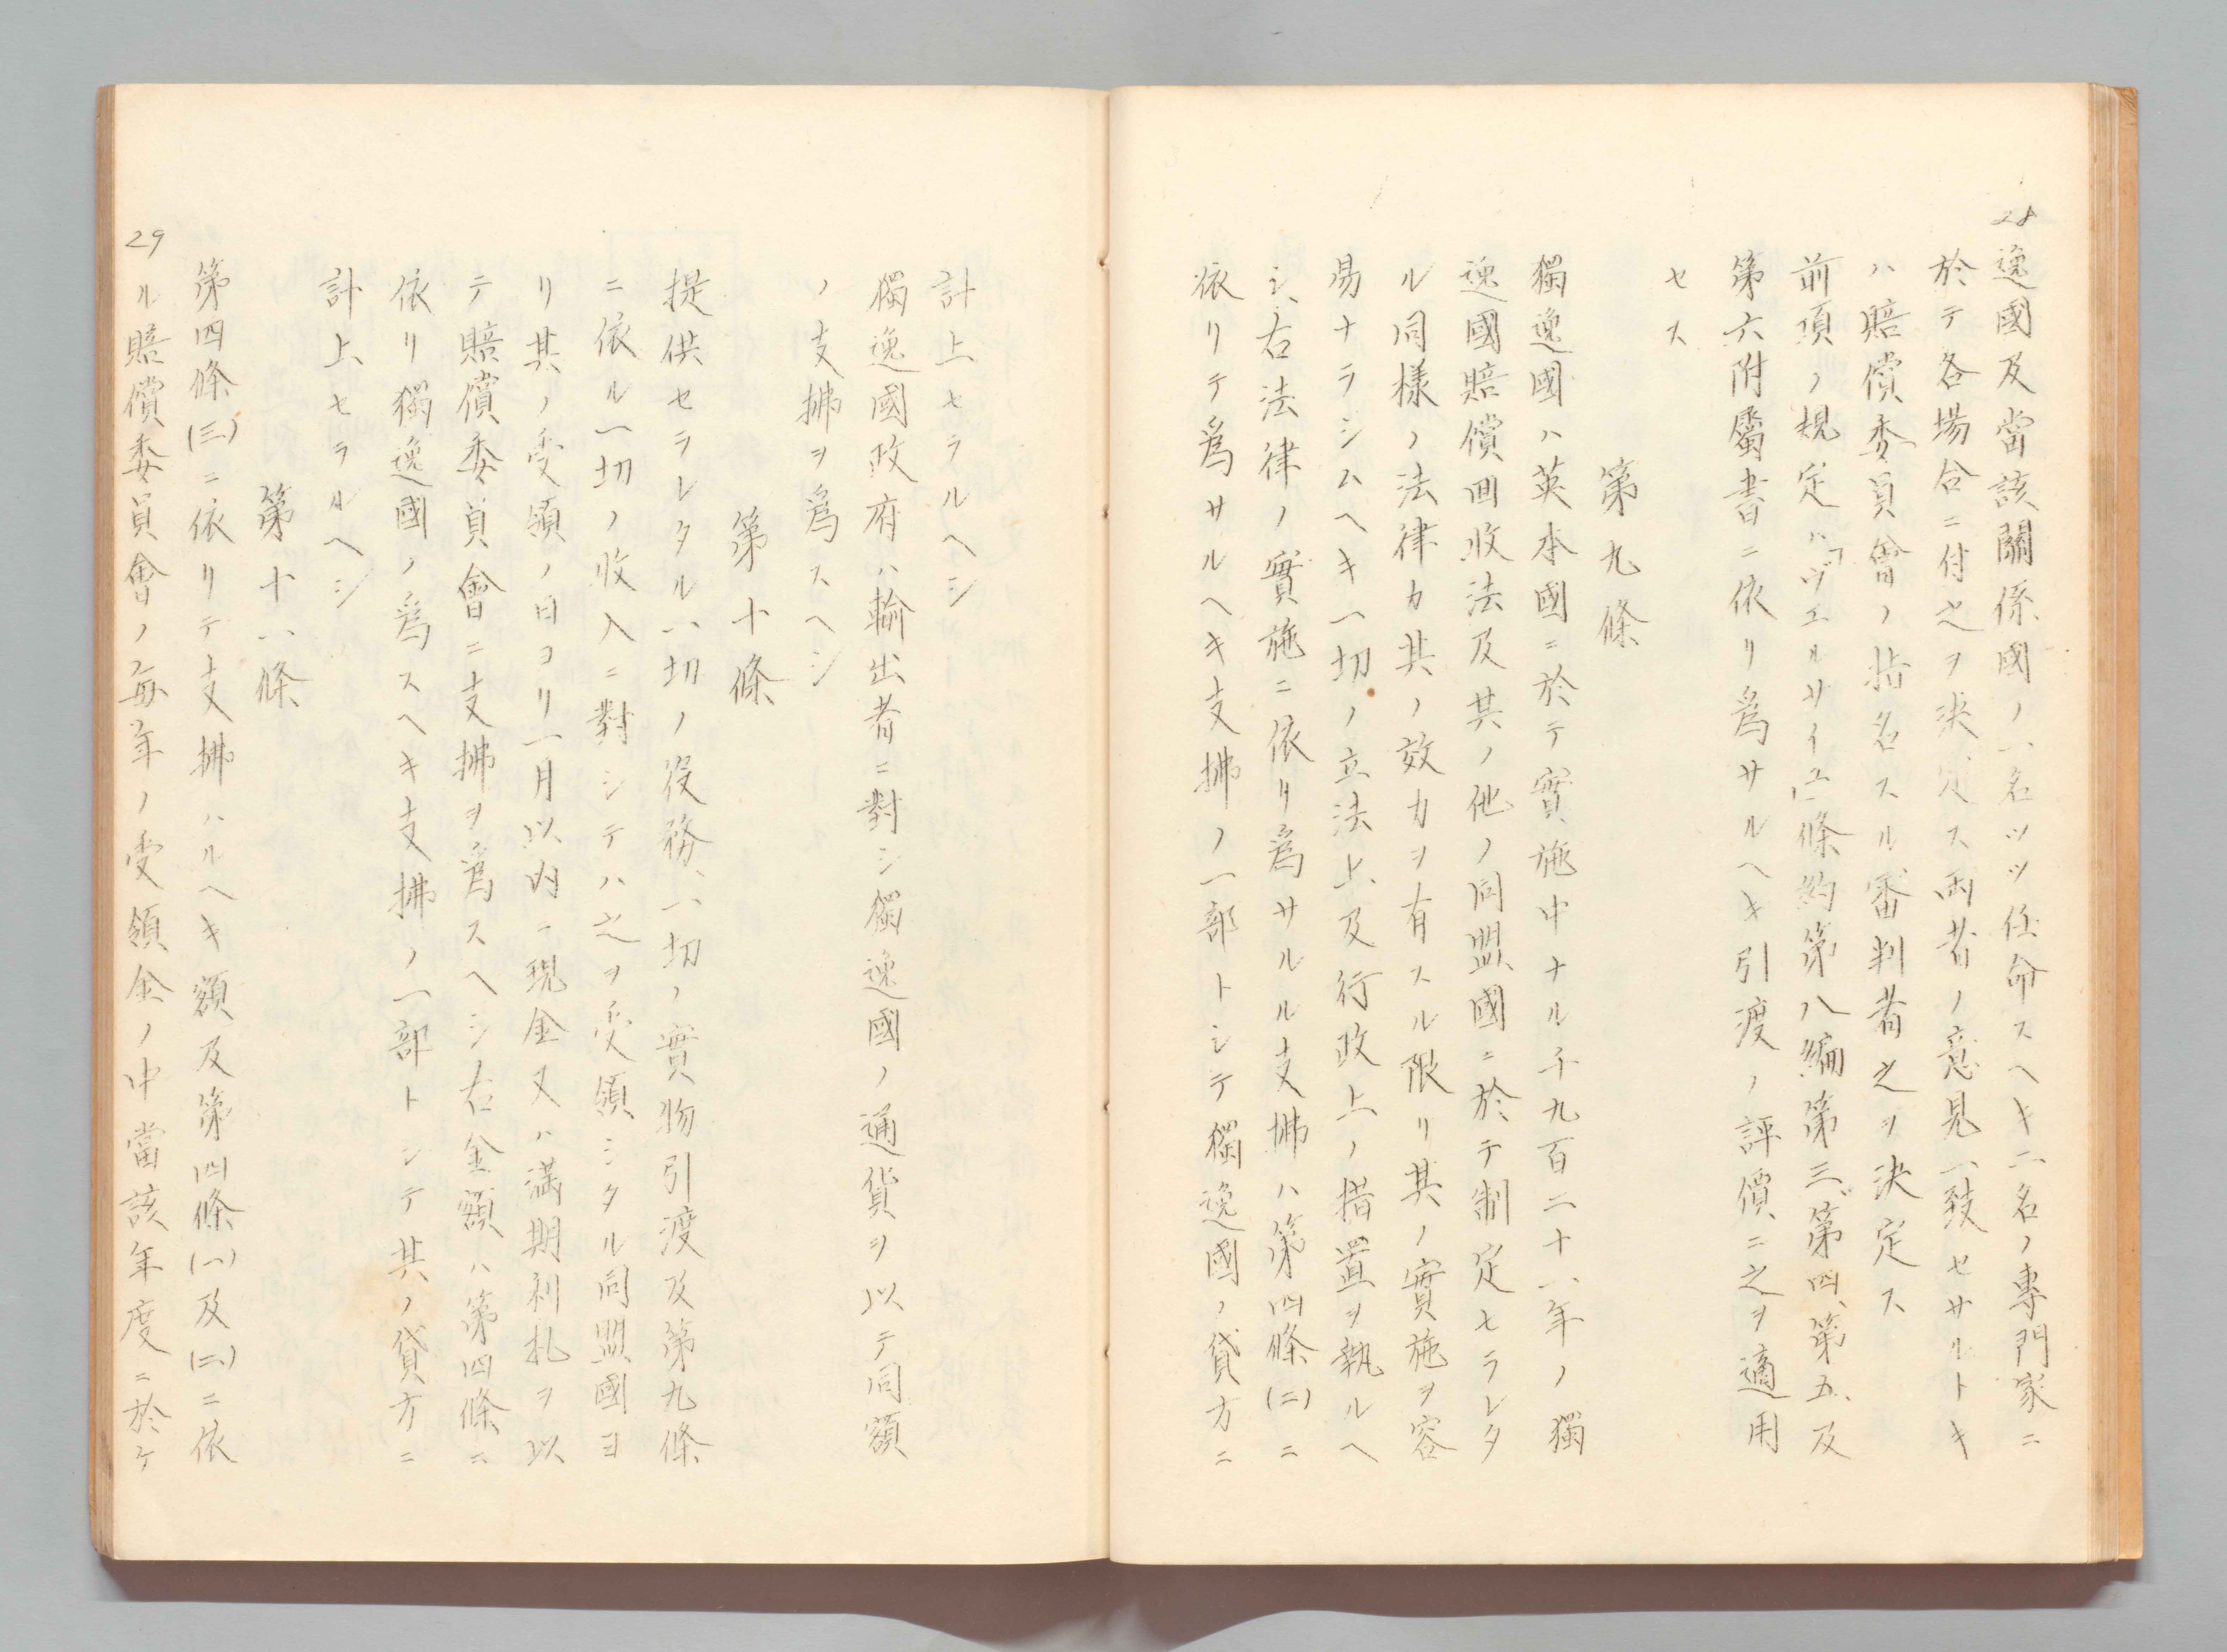 28
逸國及當該關係國ノ一名ツツ任命スヘキ二名ノ專門家ニ
於テ各場合ニ付之ヲ決定ス兩者ノ意見一致セサルトキ
ハ賠償委員會ノ指名スル審判者之ヲ決定ス
前項ノ規定ハ「ヴエルサイユ」條約第八編第三、第四、第五、及
第六附屬書ニ依リ爲サルヘキ引渡ノ評價ニ之ヲ適用
セス
第九條
獨逸國ハ英本國ニ於テ實施中ナル千九百二十一年ノ獨
逸國賠償回收法及其ノ他ノ同盟國ニ於テ制定セラレタ
ル同樣ノ法律カ其ノ效力ヲ有スル限リ其ノ實施ヲ容
易ナラシムヘキ一切ノ立法上及行政上ノ措置ヲ執ルヘ
シ、右法律ノ實施ニ依リ爲サルル支拂ハ第四條(二)ニ
依リテ爲サルヘキ支拂ノ一部トシテ獨逸國ノ貸方ニ
計上セラルヘシ
獨逸國政府ハ輸出者ニ對シ獨逸國ノ通貨ヲ以テ同額
ノ支拂ヲ爲スヘシ
第十條
提供セラレタル一切ノ役務、一切ノ實物引渡及第九條
ニ依ル一切ノ收入ニ對シテハ之ヲ受領シタル同盟國ヨ
リ其ノ受領ノ日ヨリ一月以内ニ現金又ハ滿期利札ヲ以
テ賠償委員會ニ支拂ヲ爲スヘシ右金額ハ第四條ニ
依リ獨逸國ノ爲スヘキ支拂ノ一部トシテ其ノ貸方ニ
計上セラルヘシ
第十一條
第四條(三)ニ依リテ支拂ハルヘキ額及第四條(一)及(二)ニ依
29
ル賠償委員會ノ每年ノ受領金ノ中當該年度ニ於ケ